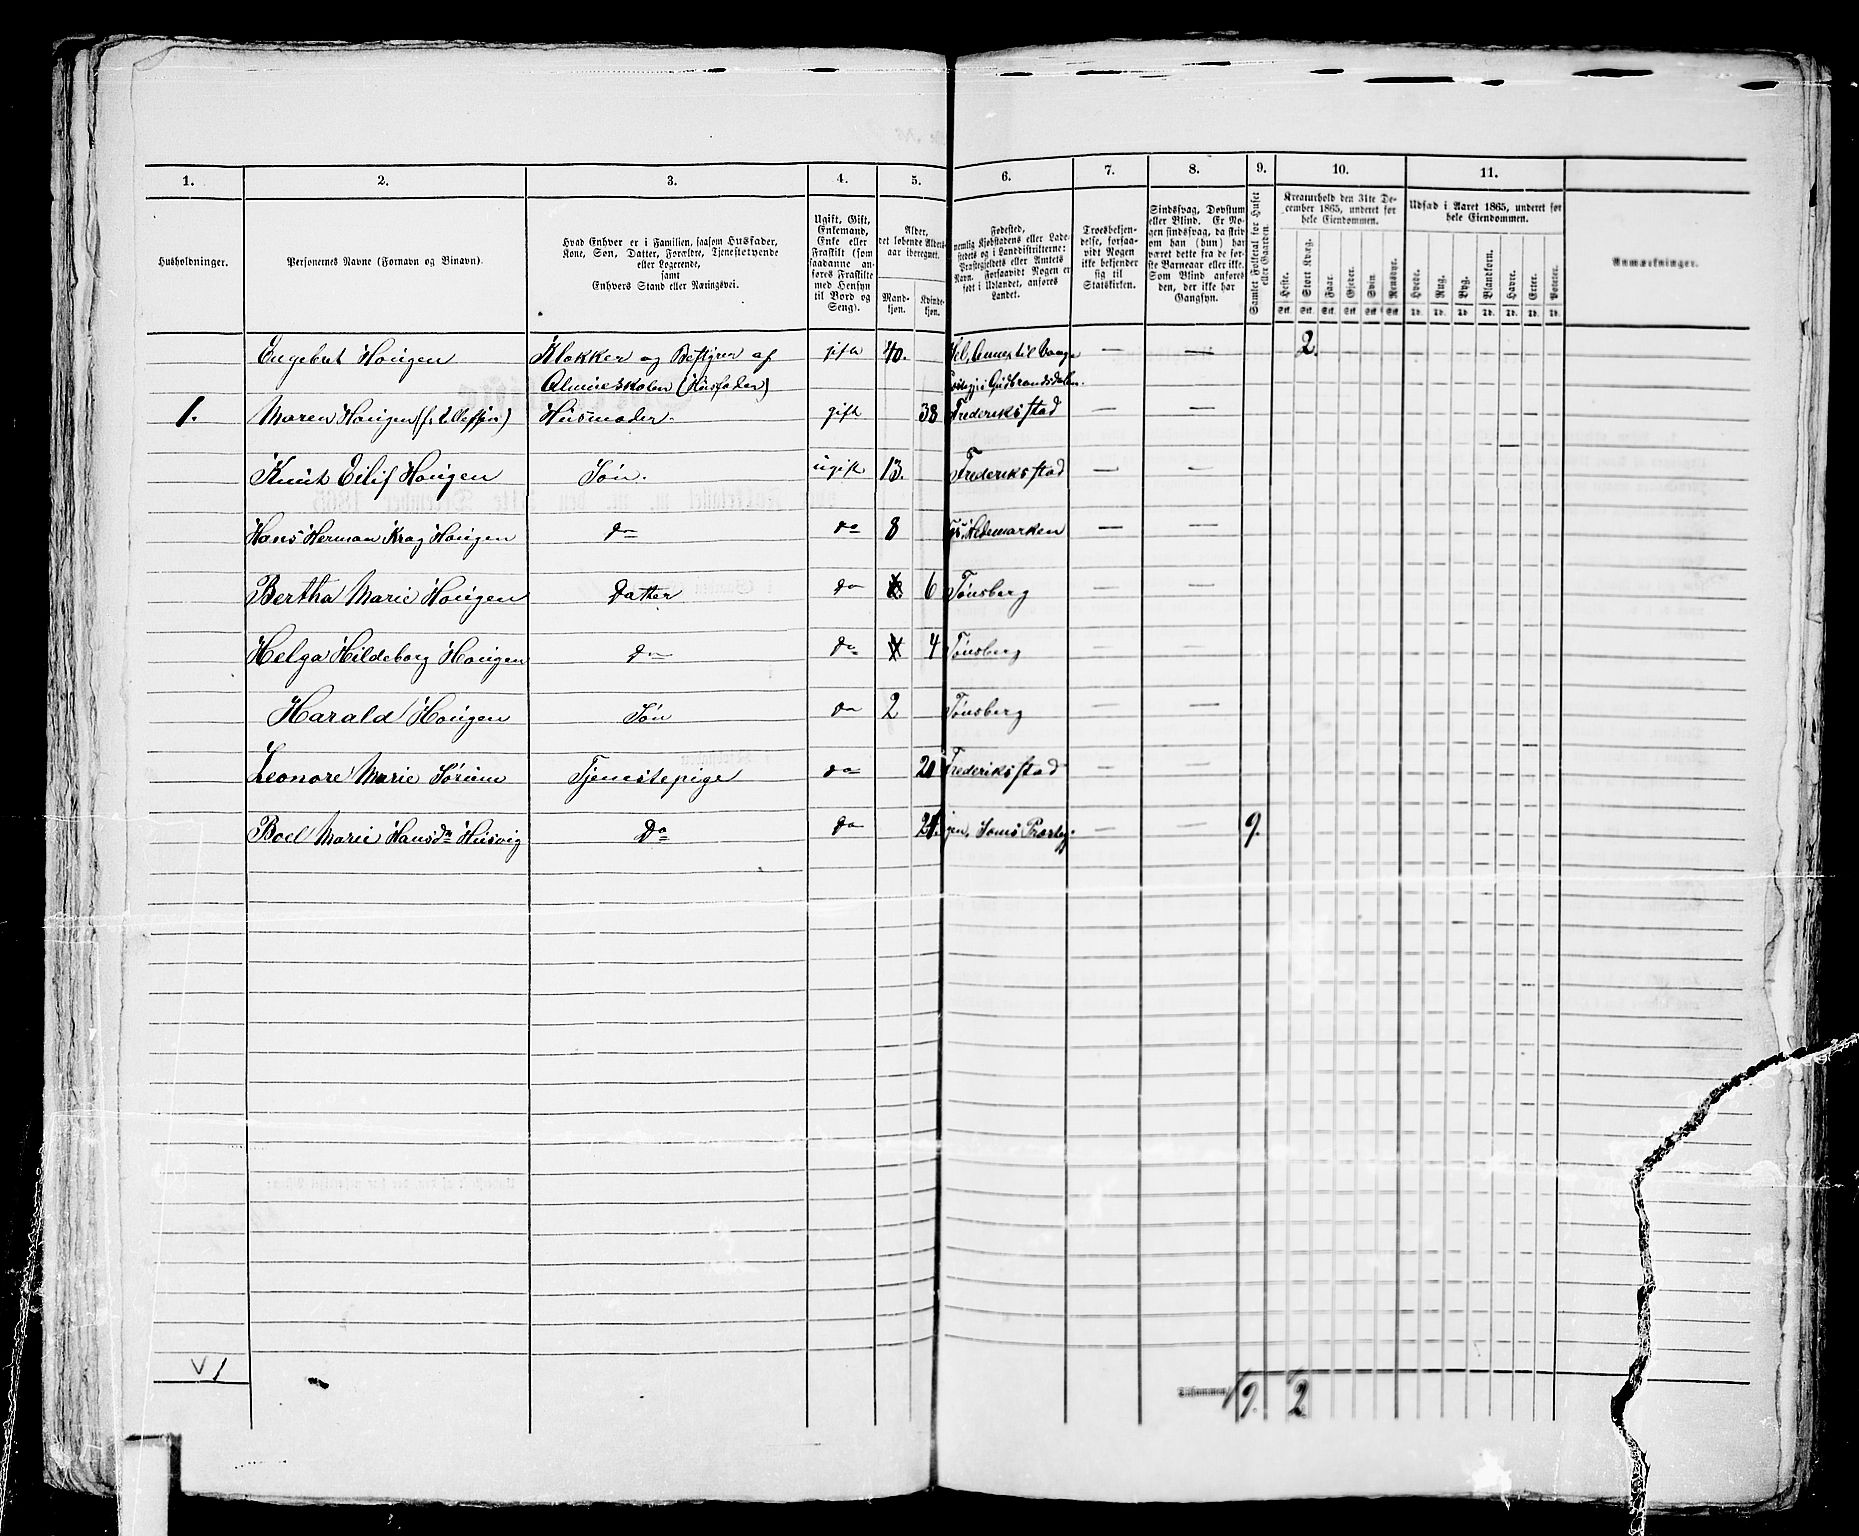 1. 2. 3. 4. 5. 6. 7. 8. 9. 10. 11.
Husholdninger.
Personernes Navne (Fornavn og Binavn).
Hvad Enhver er i Familien, saasom Husfader,
Kone, Søn, Datter, Forældre, Tjenestetyende
eller Logerende,
samt
Enhvers Stand eller Næringsvei.
Ugift, Gift,
Enkemand,
Enke eller
Fraskilt (som
saadanne an-
føres Fraskilte
med Hensyn
til Bord og
Seng).
Alder,
det løbende Alders-
aar iberegnet.
Mand-
kjøn.
Kvinde-
kjøn.
Fødested,
nemlig Kjøbstadens eller Lade-
stedets og i Landdistrikterne:
Præstegjeldets eller Amtets
Navn. Forsaavidt Nogen er
født i Udlandet, anføres
Landet.
Troesbekjen-
delse, forsaa-
vidt Nogen
ikke bekjender
sig til
Statskirken.
Sindssvag, Døvstum
eller Blind. Er No-
gen sindssvag, da skriv
om han (hun) har
været dette fra de før-
ste Barneaar eller ikke.
Som Blind anføres
den, der ikke har
Gangsyn.
Samlet Folketal for Huset
eller Gaarden.
Kreaturhold den 31te De-
cember 1865, underet for
hele Eiendommen.
Heste. Stort Kvæg. Faar. Gjeder. Svin. Rensdyr.
Stk. Stk. Stk. Stk. Stk. Stk.
Udsæd i Aaret 1865, underet for
hele Eiendommen.
Hvede. Rug. Byg. Blandkorn. Havre. Erter. Poteter.
Td. Td. Td. Td. Td. Td. Td.
Anmærkninger.
Engebret Hougen Klokker og Bestyrer af gift 40. Sel, Annex til Vaage — — 2.
Almueskolen (Husfader) i Gudbrandsdalen.
1. Maren Hougen Husmoder. gift 38 Frederiksstad — —
Knut Eilif Hougen Søn. ugift 13. Frederiksstad — —
Hans Herman Krag Hougen do do 8 Hedemarken — —
Bertha Marie Hougen Datter do 6 Tønsberg — —
Helga Hildeborg Hougen do do 4 Tønsberg — —
Harald Hougen Søn do 2 Tønsberg — —
Leonore Marie Sørum Tjenestepige do Frederiksstad — —
Boel Marie Hansdr Husvig Do do Sems Præstegj. — — 9.
V 1
Tilsammen 9. 2